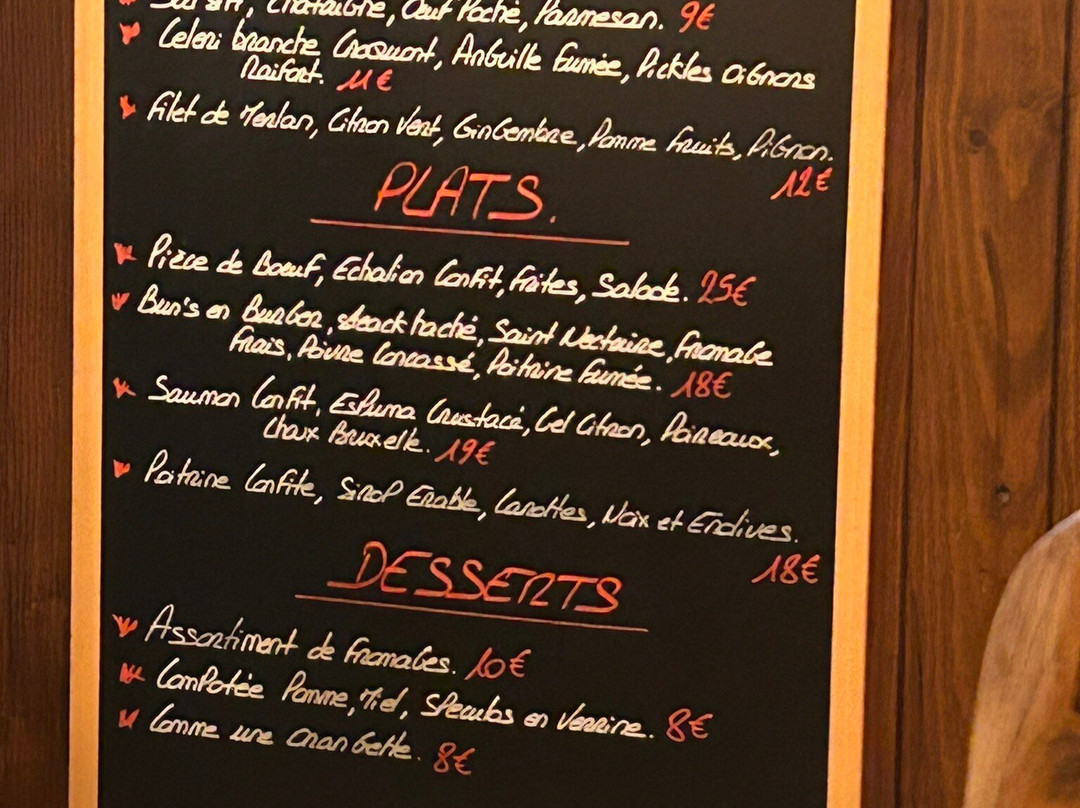 Châtaigne, Oeuf Poché, Parmesan. 9€
Céleri branche Croquant, Anguille Fumée, Pickles oignons
Raifort. 11€
Filet de Merlan, Citron Vert, Gingembre, Pomme Fruits, Pignon.
12€
PLATS.
Pièce de Boeuf, Echalion Confit, Frites, Salade. 25€
Bun's en Burger, steack haché, Saint Nectaire, Fromage
Frais, Poivre Concassé, Poitrine Fumée. 18€
Saumon Confit, Espuma Crustacé, Gel Citron, Poireaux,
Choux Bruxelle. 19€
Poitrine Confite, Sirop Erable, Carottes, Noix et Endives.
18€
DESSERTS
Assortiment de Fromages. 10€
Compotée Pomme, Miel, Speculos en Verrine. 8€
Comme une Orangette. 8€